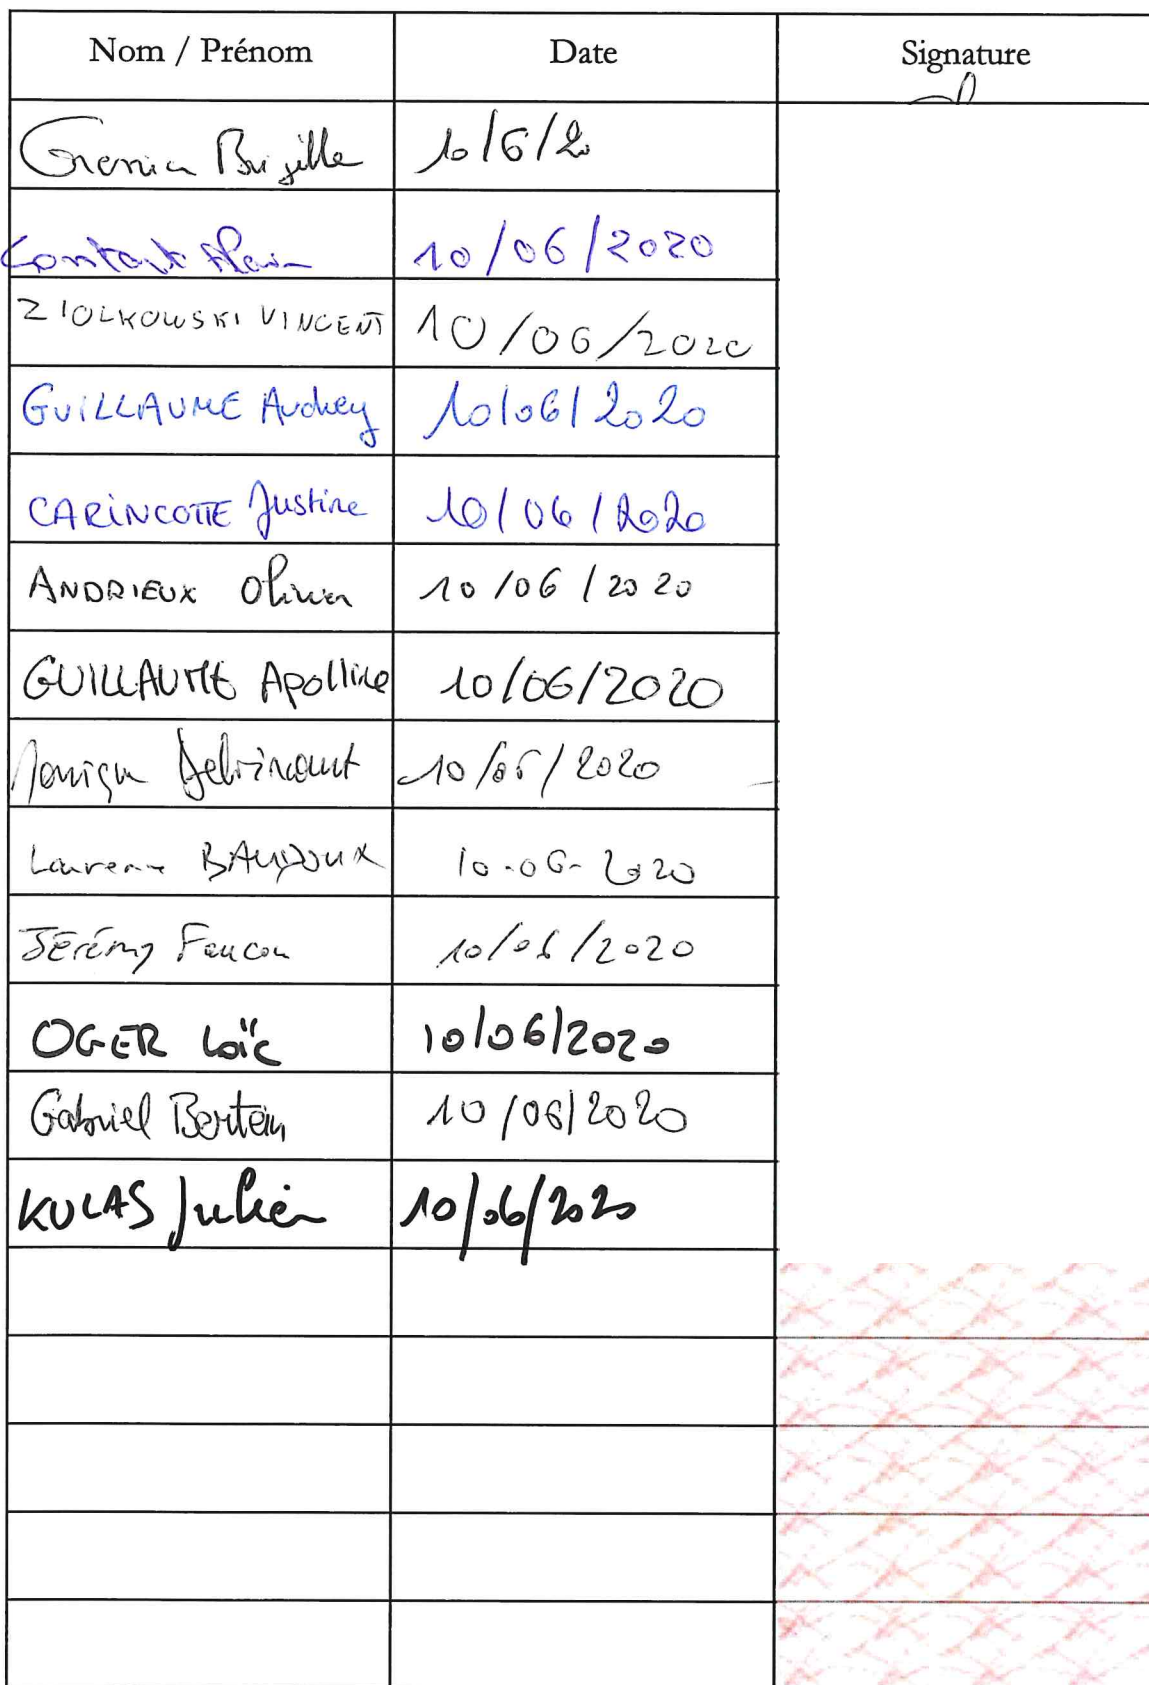 Nom / Prénom Date Signature
10/6/20
10/06/2020
ZIOLKOWSKI VINCENT 10/06/2020
GUILLAUME Audrey 10/06/2020
CARINCOTTE Justine 10/06/2020
ANDRIEUX Olivier 10/06/2020
GUILLAUME Apolline 10/06/2020
10/06/2020
BAUDOUX 10-06-2020
Jérémy Faucon 10/06/2020
OGER Loïc 10/06/2020
Gabriel Bertein 10/06/2020
KULAS Julien 10/06/2020